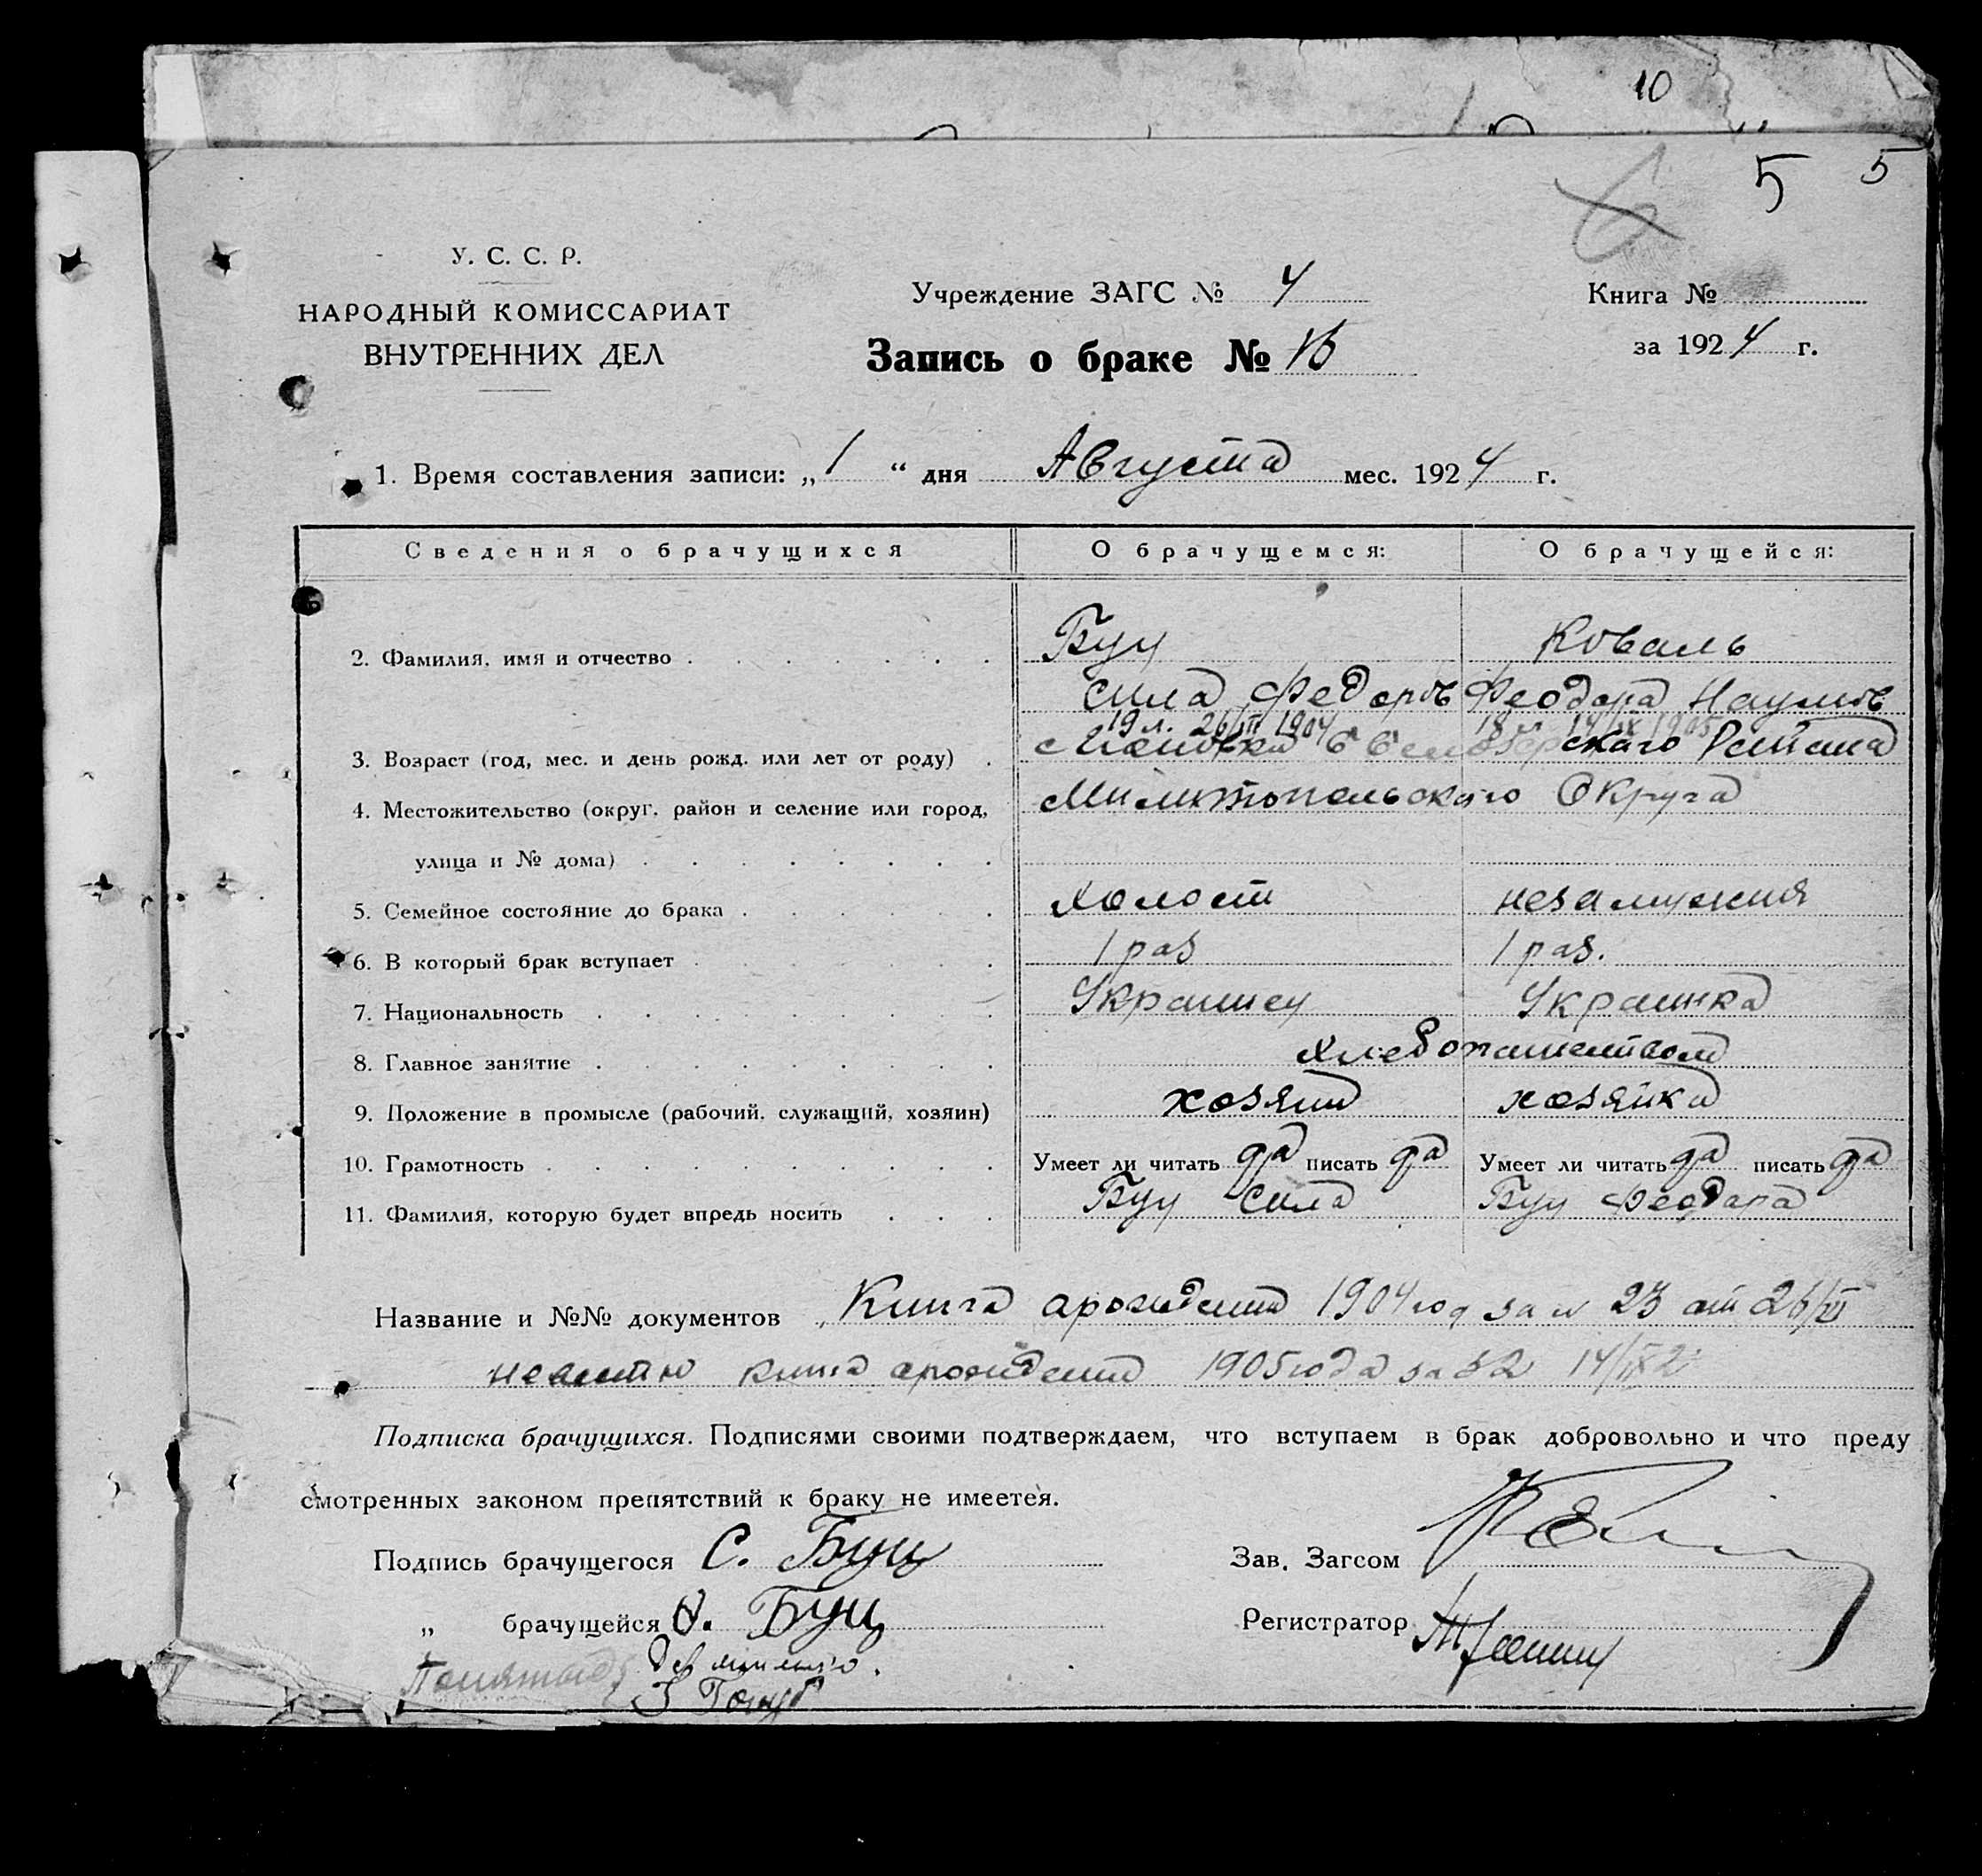 10
5 5
6
У. С. С. Р.
НАРОДНЫЙ КОМИССАРИАТ
ВНУТРЕННИХ ДЕЛ
Учреждение ЗАГС № 4
Запись о браке №
Книга №
за 1924 г.
1. Время составления записи: „1“ дня Августа мес. 1924 г.
Сведения о брачущихся О брачущемся: О брачущейся:
2. Фамилия, имя и отчество Буц Коваль
Сила Федоров Феодора Наумов
19 л. 26/VI 1904 18 л 14/IX 1905
3. Возраст (год, мес. и день рожд. или лет от роду)
4. Местожительство (округ, район и селение или город, Милитопольскаго Округа
улица и № дома)
5. Семейное состояние до брака холост незамужняя
6. В который брак вступает 1 раз 1 раз.
7. Национальность Украинец Украинка
8. Главное занятие хлебопашеством
9. Положение в промысле (рабочий, служащий, хозяин) хозяин хозяйка
10. Грамотность Умеет ли читать да писать да Умеет ли читать да писать да
11. Фамилия, которую будет впредь носить Буц Сила Буц Феодора
Название и №№ документов Книга 1904 год за № 23 от 26/VI
книга 1905 года за 52 14/IX
Подписка брачущихся. Подписями своими подтверждаем, что вступаем в брак добровольно и что преду
смотренных законом препятствий к браку не имеется.
Подпись брачущегося С. Буц Зав. Загсом
„ брачущейся Ф. Буц Регистратор